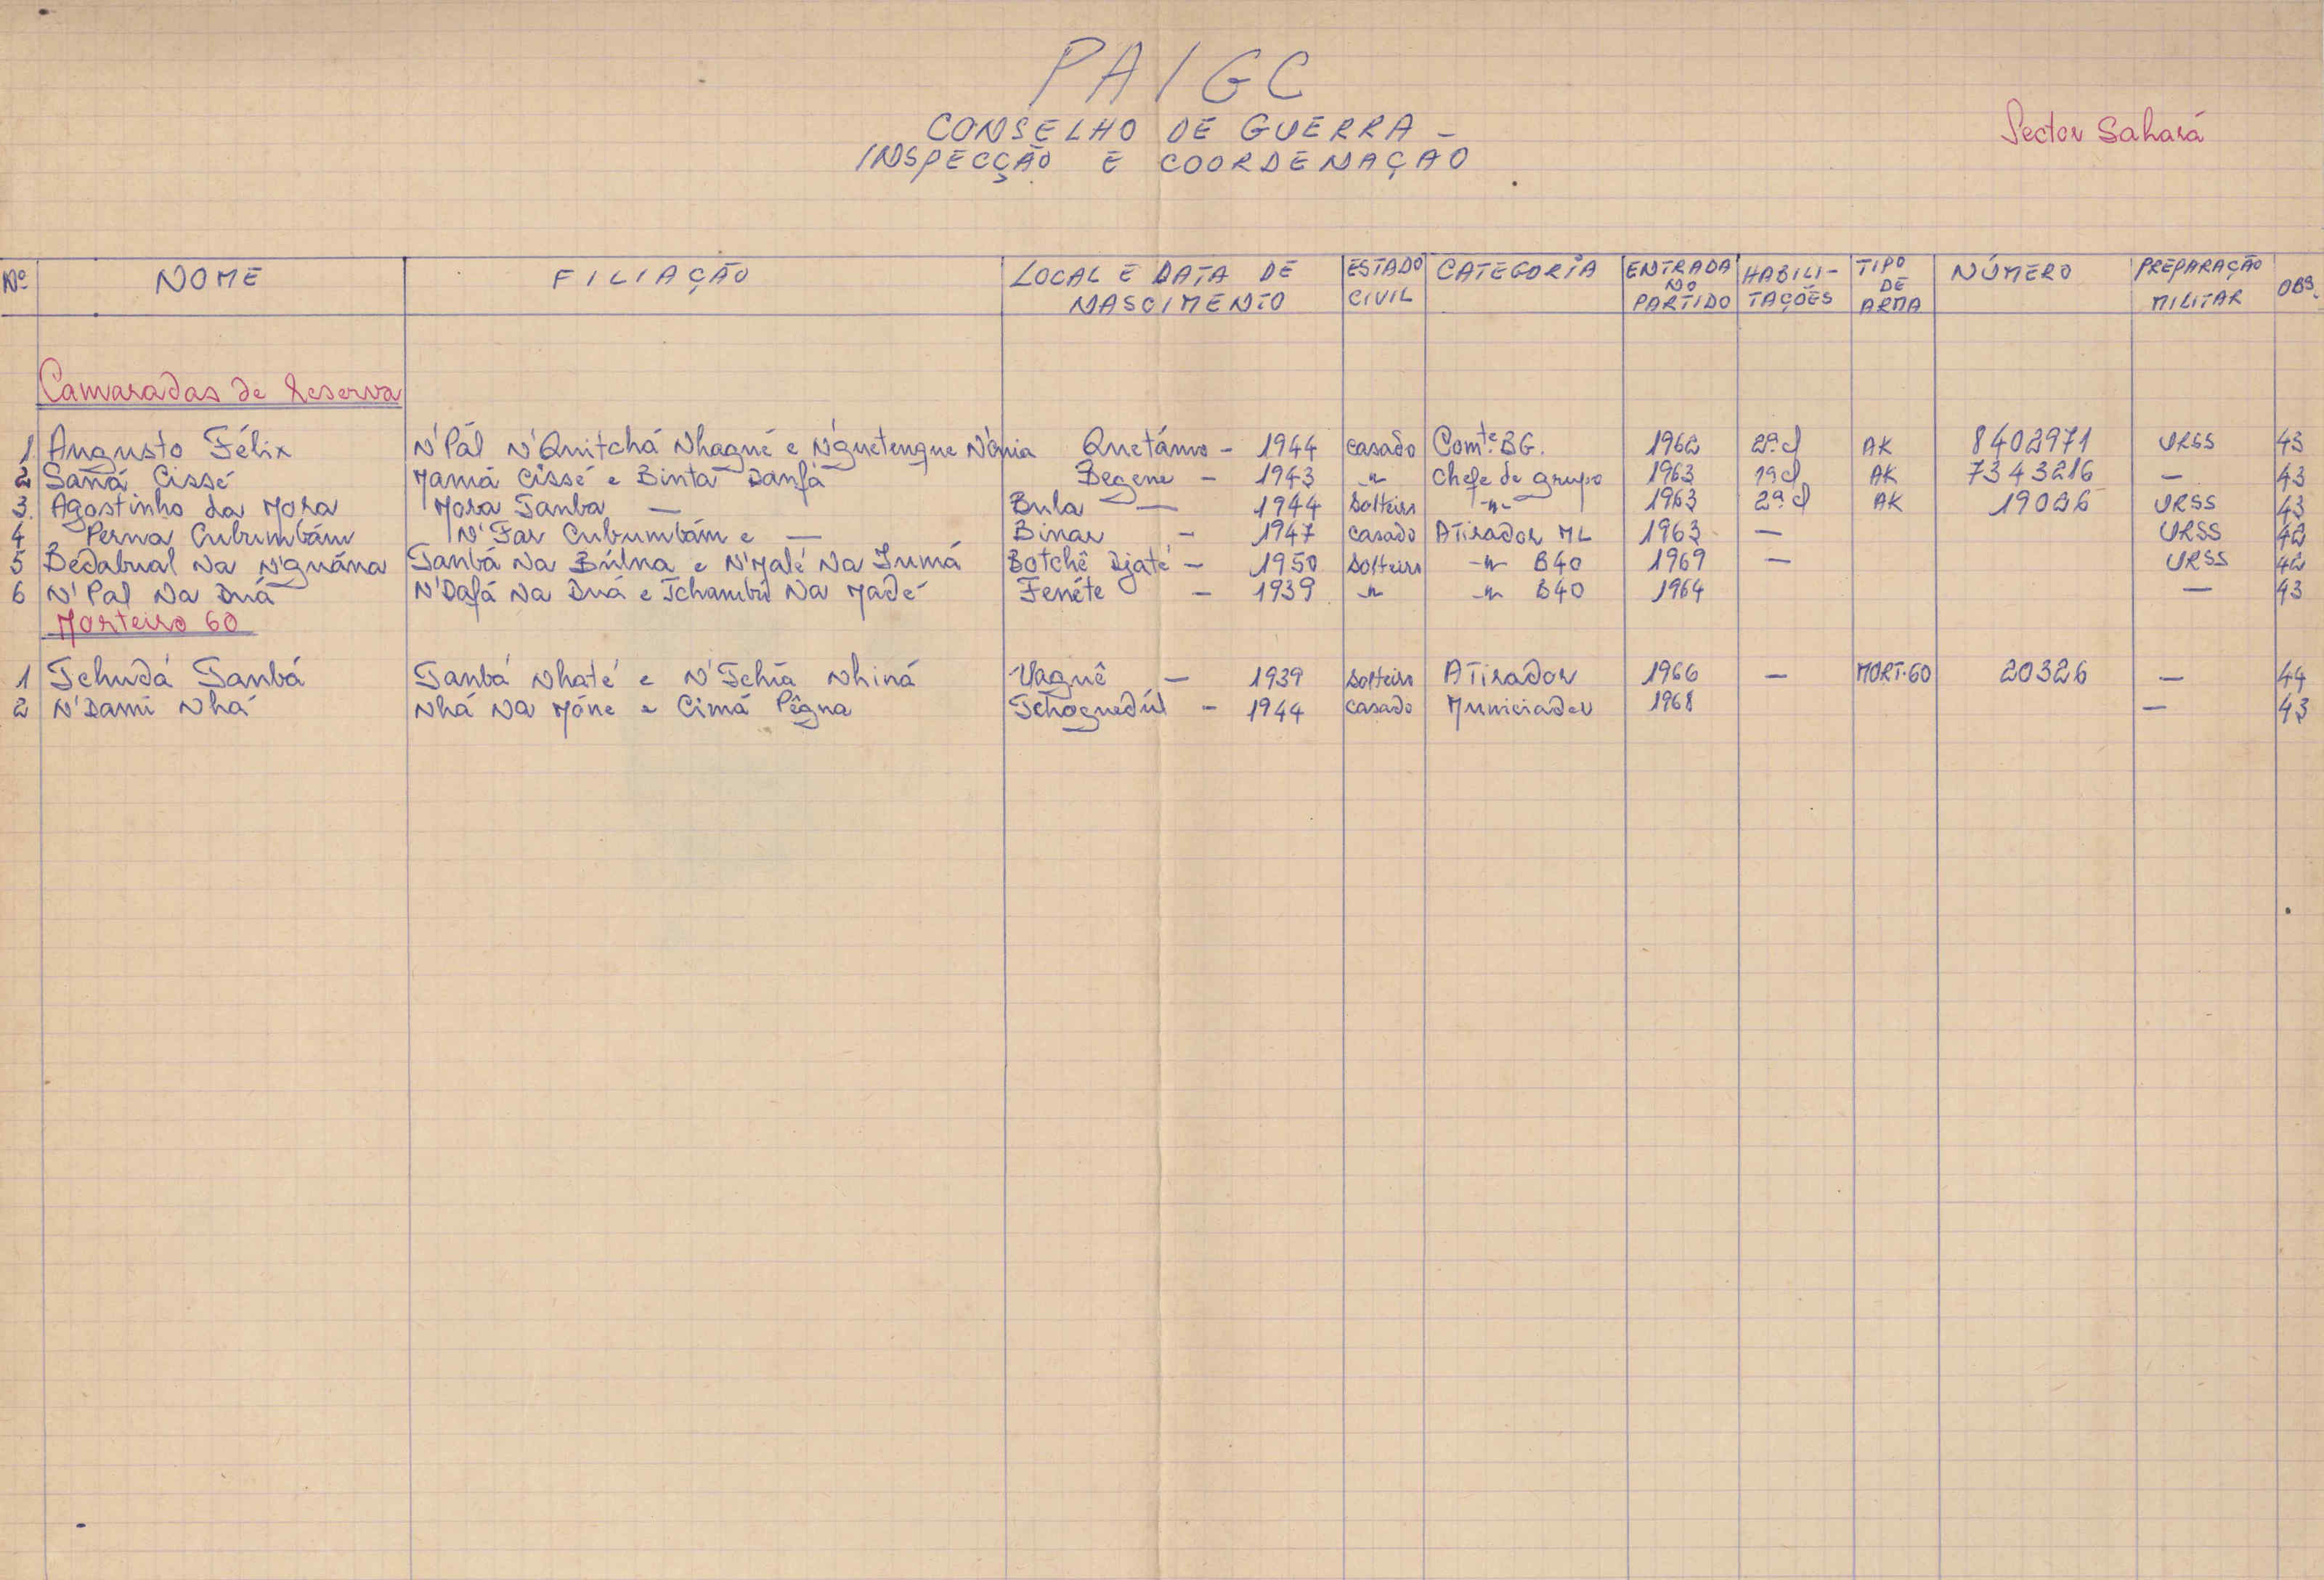 PAIGC
CONSELHO DE GUERRA -
INSPECÇÃO E COORDENAÇAO
Sector Sahará
Nº NOME FILIAÇÃO LOCAL E DATA DE NASCIMENTO ESTADO CIVIL CATEGORIA ENTRADA NO PARTIDO HABILI-TAÇÕES TIPO DE ARMA NÚMERO PREPARAÇÃO MILITAR OBS.
Camaradas de Reserva
1 Augusto Félix N'Pál N'Quitchá Nhagué e N'guetengue N'ónia Quetámo - 1944 casado Comte. BG. 1962 2ª cl AK 8402971 URSS 43
2 Saná Cissé Mamá Cissé e Binta Danfá Begene - 1943 " Chefe de grupo 1963 1ª cl AK 7343216 — 43
3. Agostinho da Mora Mora Tamba — Bula — 1944 Solteiro " 1963 2ª cl AK 19026 URSS 43
4 Perna Cubumbám N'Far Cubumbám e — Binar - 1947 casado ATirador ML 1963 — URSS 42
5 Bedabual Na N'guána Tambá Na Búlna e N'Malé Na Iumá Botchê Djaté - 1950 Solteiro -"- B40 1969 — URSS 42
6 N'Pal Na Duá N'Dafá Na Duá e Tchambú Na Madé Fenéte - 1939 -"- -"- B40 1964 — 43
Morteiro 60
1 Tchudá Tambá Tambá Nhaté e N'Tchia Nhiná Vaguê — 1939 Solteiro ATirador 1966 — MORT.60 20326 — 44
2 N'Dami Nhá Nhá Na Móne e Cimá Pêgna Tchoguedúl - 1944 casado Municiador 1968 — 43